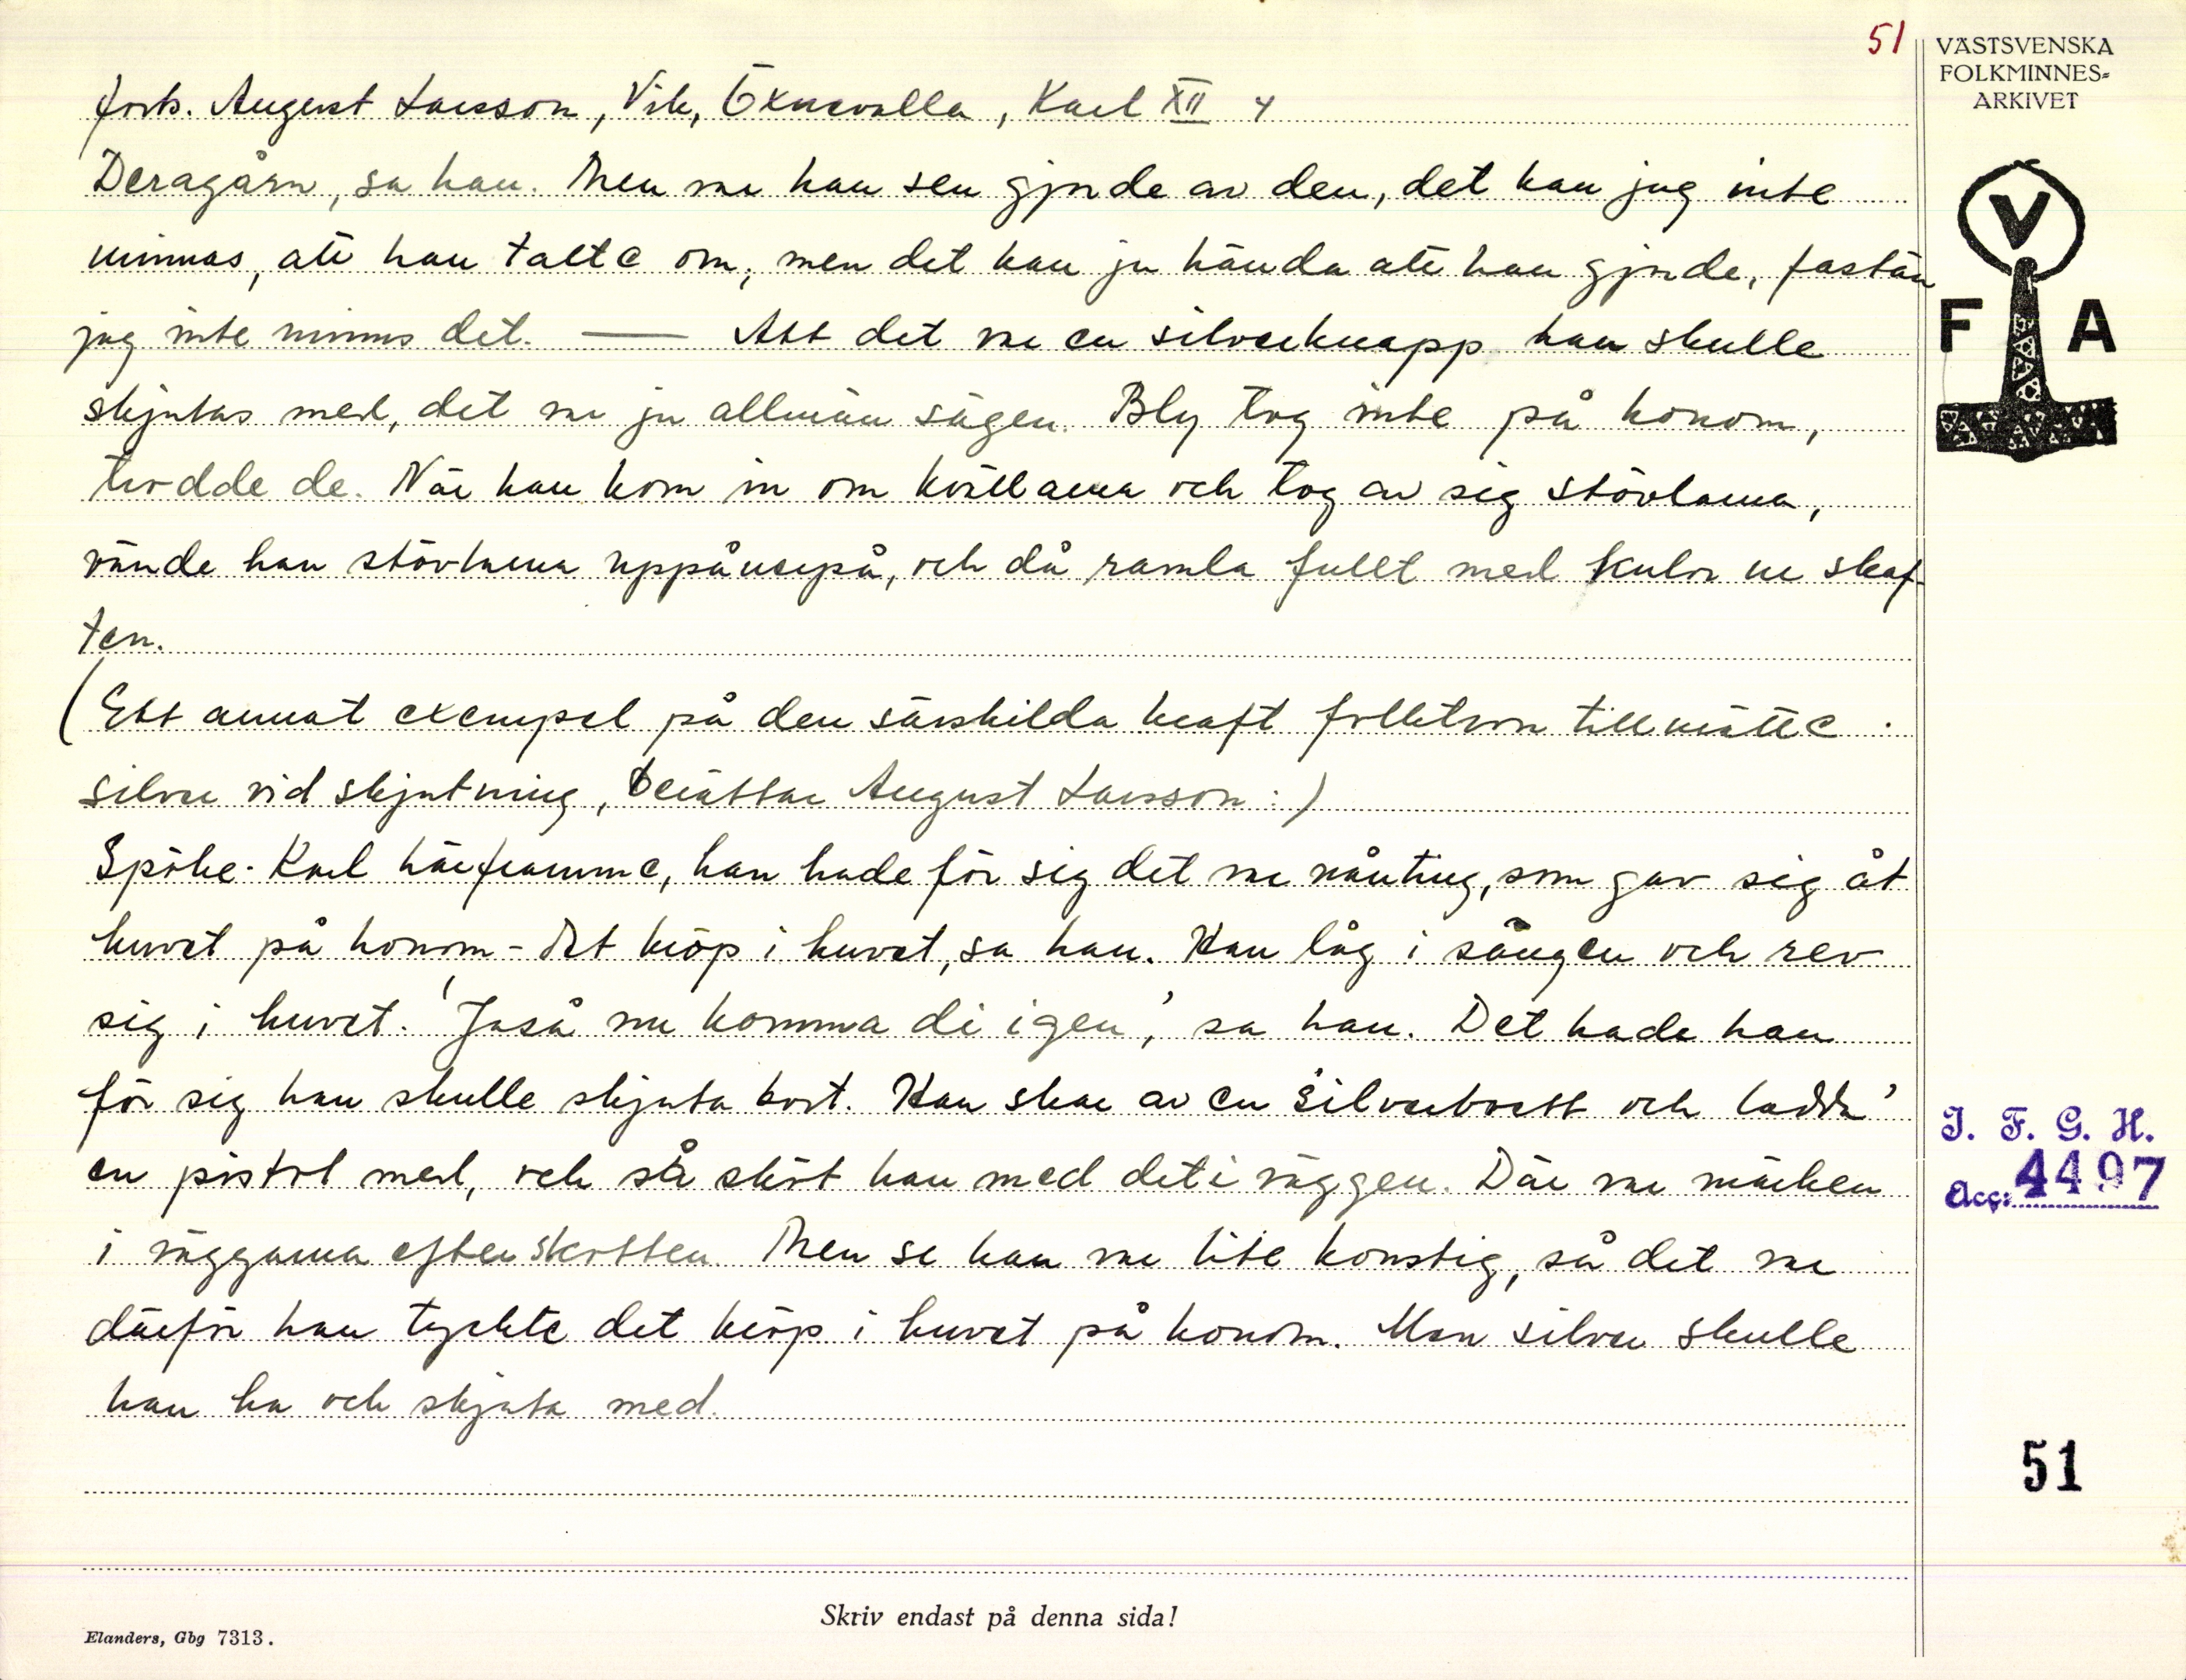 51
VÄSTSVENSKA
FOLKMINNES-
ARKIVET
forts. August Larsson, Vik, Öxnevalla, Karl XII 4
Deragårn, sa han. Men va han sen gjorde av den, det kan jag inte
minnas, att han talte om, men det kan ju hända att han gjorde, fastän
jag inte minns det. — Att det va en silverknapp han skulle
skjutas med, det va ju allmän sägen. Bly tog inte på honom,
trodde de. När han kom in om kvällarna och tog av sig stövlarna,
vände han stövlarna uppåneråpå, och då ramla fullt med kulor ur skaf-
ten.
(Ett annat exempel på den särskilda kraft folktron tillmätte
silver vid skjutning, berättar August Larsson:)
Spöke-Karl härframme, han hade för sig det va nånting, som gav sig åt
huvet på honom - det kröp i huvet, sa han. Han låg i sängen och rev
sig i huvet. 'Jaså nu komma di igen', sa han. Det hade han
för sig han skulle skjuta bort. Han skar av en silverbrott och ladda'
en pistol med, och så sköt han med det i väggen. Där va märken
i väggarna efter skotten. Men se han va lite konstig, så det va
därför han tyckte det kröp i huvet på honom. Men silver skulle
han ha och skjuta med.
V
F A
I. F. G. H.
Acc: 4497
51
Skriv endast på denna sida!
Elanders, Gbg 7313.